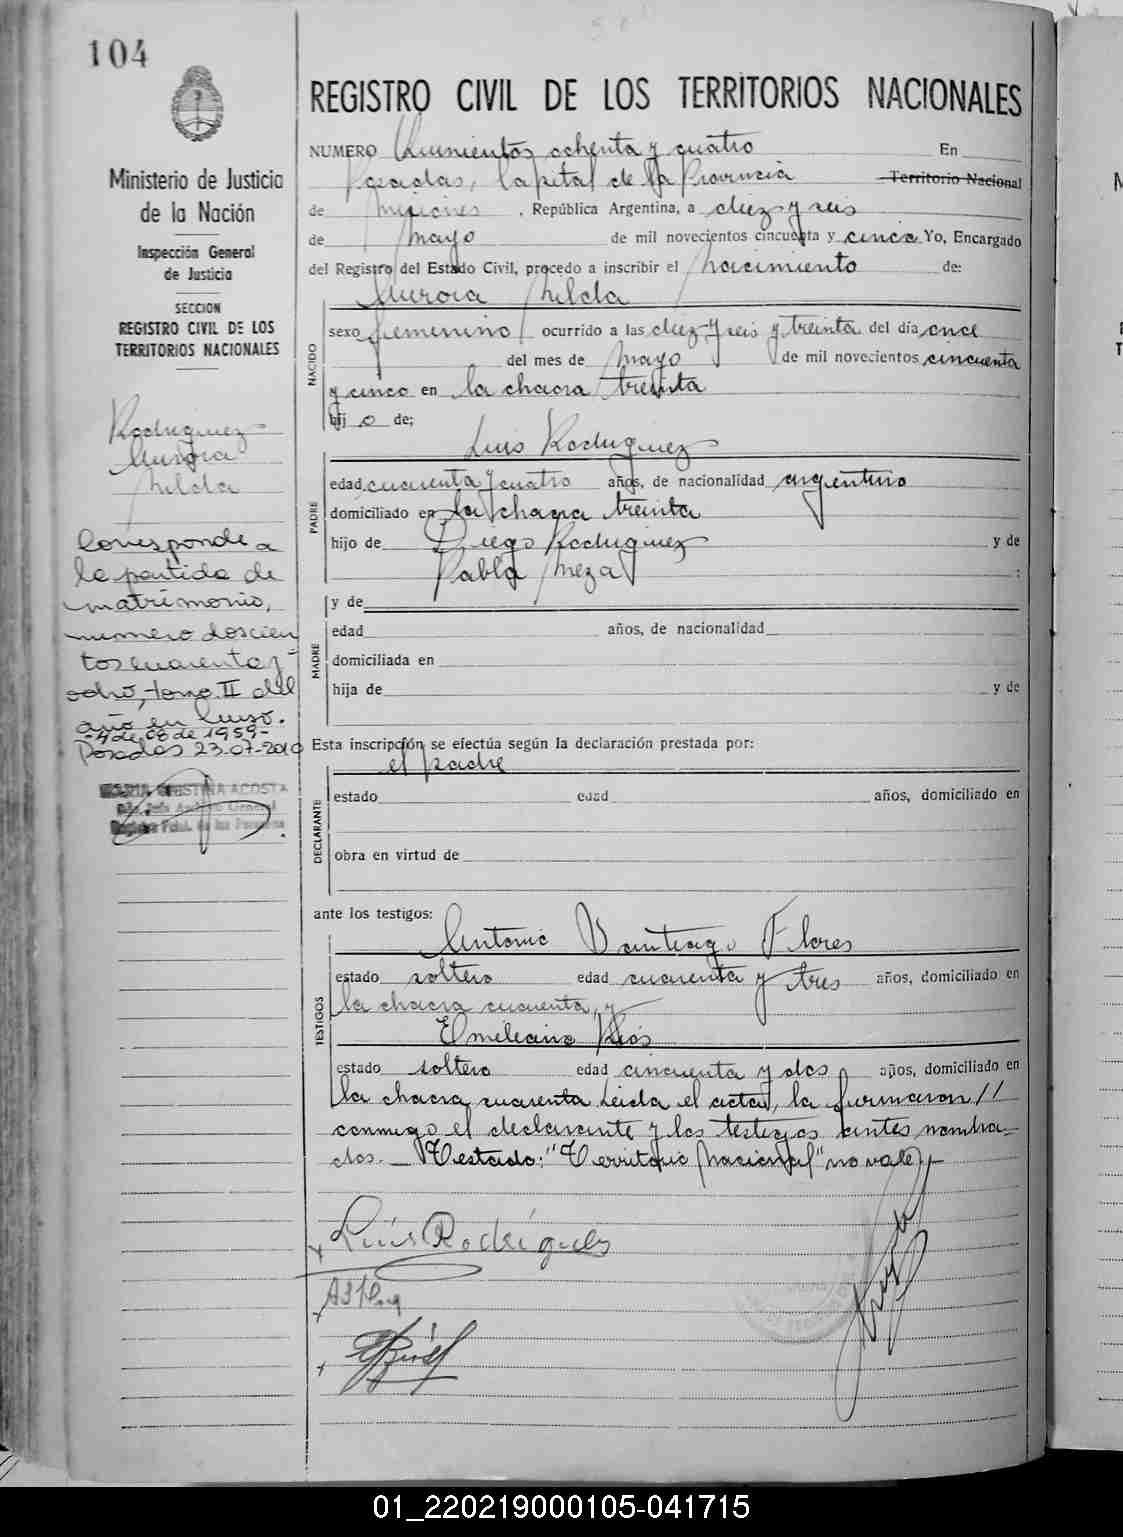 104
REGISTRO CIVIL DE LOS TERRITORIOS NACIONALES
Ministerio de Justicia
de la Nación
Inspección General
de Justicia
SECCION
REGISTRO CIVIL DE LOS
TERRITORIOS NACIONALES
Rodriguez
Aurora
Nilda
Corresponde a
la partida de
matrimonio,
numero doscien
tos cuarenta y
ocho, tomo II del
año en curso.
-4 de 08 de 1959-
Posadas 23-07-2010
MARIA CRISTINA ACOSTA
NUMERO Quinientos ochenta y cuatro En
Posadas, Capital de la Provincia Territorio Nacional
de Misiones , República Argentina, a diez y seis
de Mayo de mil novecientos cincuenta y cinco Yo, Encargado
del Registro del Estado Civil, procedo a inscribir el Nacimiento de:
Aurora Nilda
NACIDO
sexo femenino ocurrido a las diez y seis y treinta del día once
del mes de Mayo de mil novecientos cincuenta
y cinco en la chacra treinta
hij o de;
Luis Rodriguez
PADRE
edad cuarenta y cuatro años, de nacionalidad argentino
domiciliado en la chacra treinta
hijo de Diego Rodriguez y de
Pabla Meza :
MADRE
y de
edad años, de nacionalidad
domiciliada en
hija de y de
Esta inscripción se efectúa según la declaración prestada por:
el padre
DECLARANTE
estado edad años, domiciliado en
obra en virtud de
ante los testigos:
Antonio Santiago Flores
TESTIGOS
estado soltero edad cuarenta y tres años, domiciliado en
la chacra cuarenta, y
Emiliano Rios
estado soltero edad cincuenta y dos años, domiciliado en
la chacra cuarenta Leida el acta, la firmaron //
conmigo el declarante y los testigos antes nombra-
dos. — Testado: "Territorio Nacional" no vale
Luis Rodrigues
01_220219000105-041715